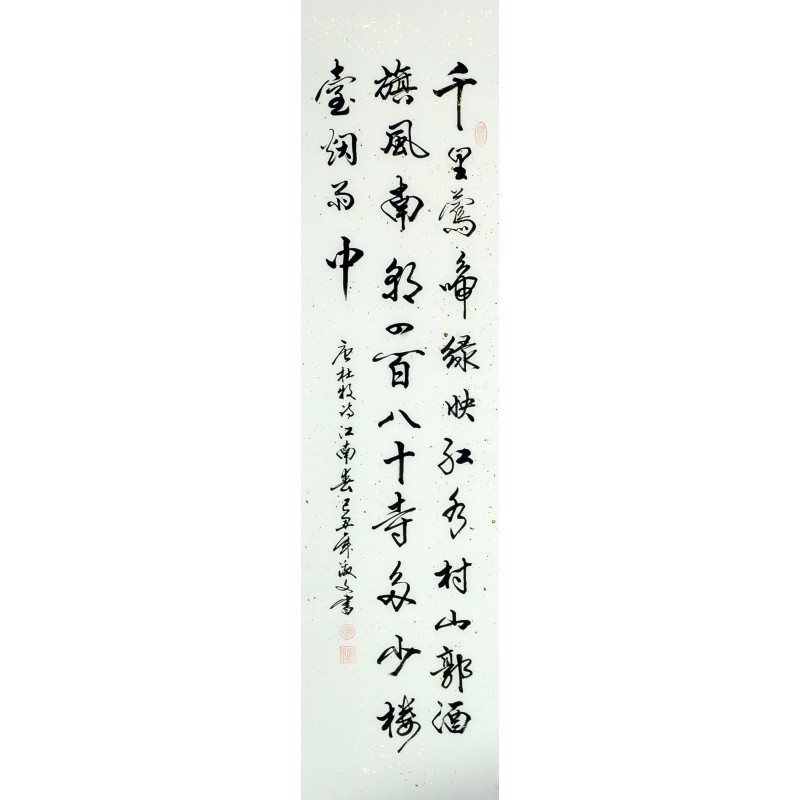 千里鶯啼緑映紅水村山郭酒
旗風南朝四百八十寺多少楼
臺烟雨中
唐杜牧诗江南春己丑年淑文書